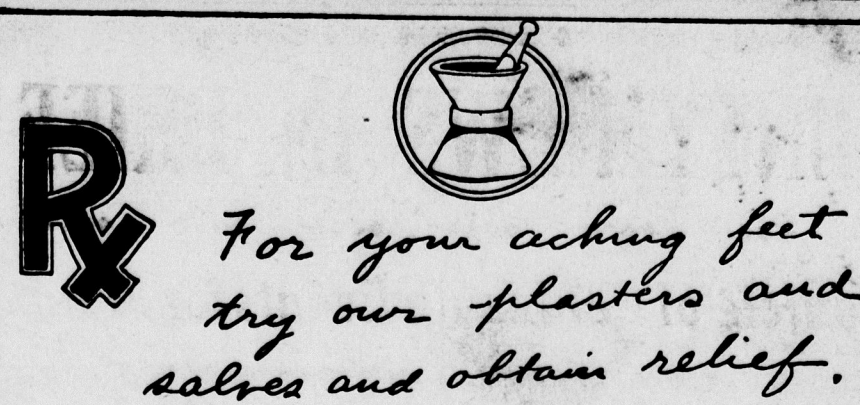 Rx
For your aching feet
try our plasters and
salves and obtain relief.